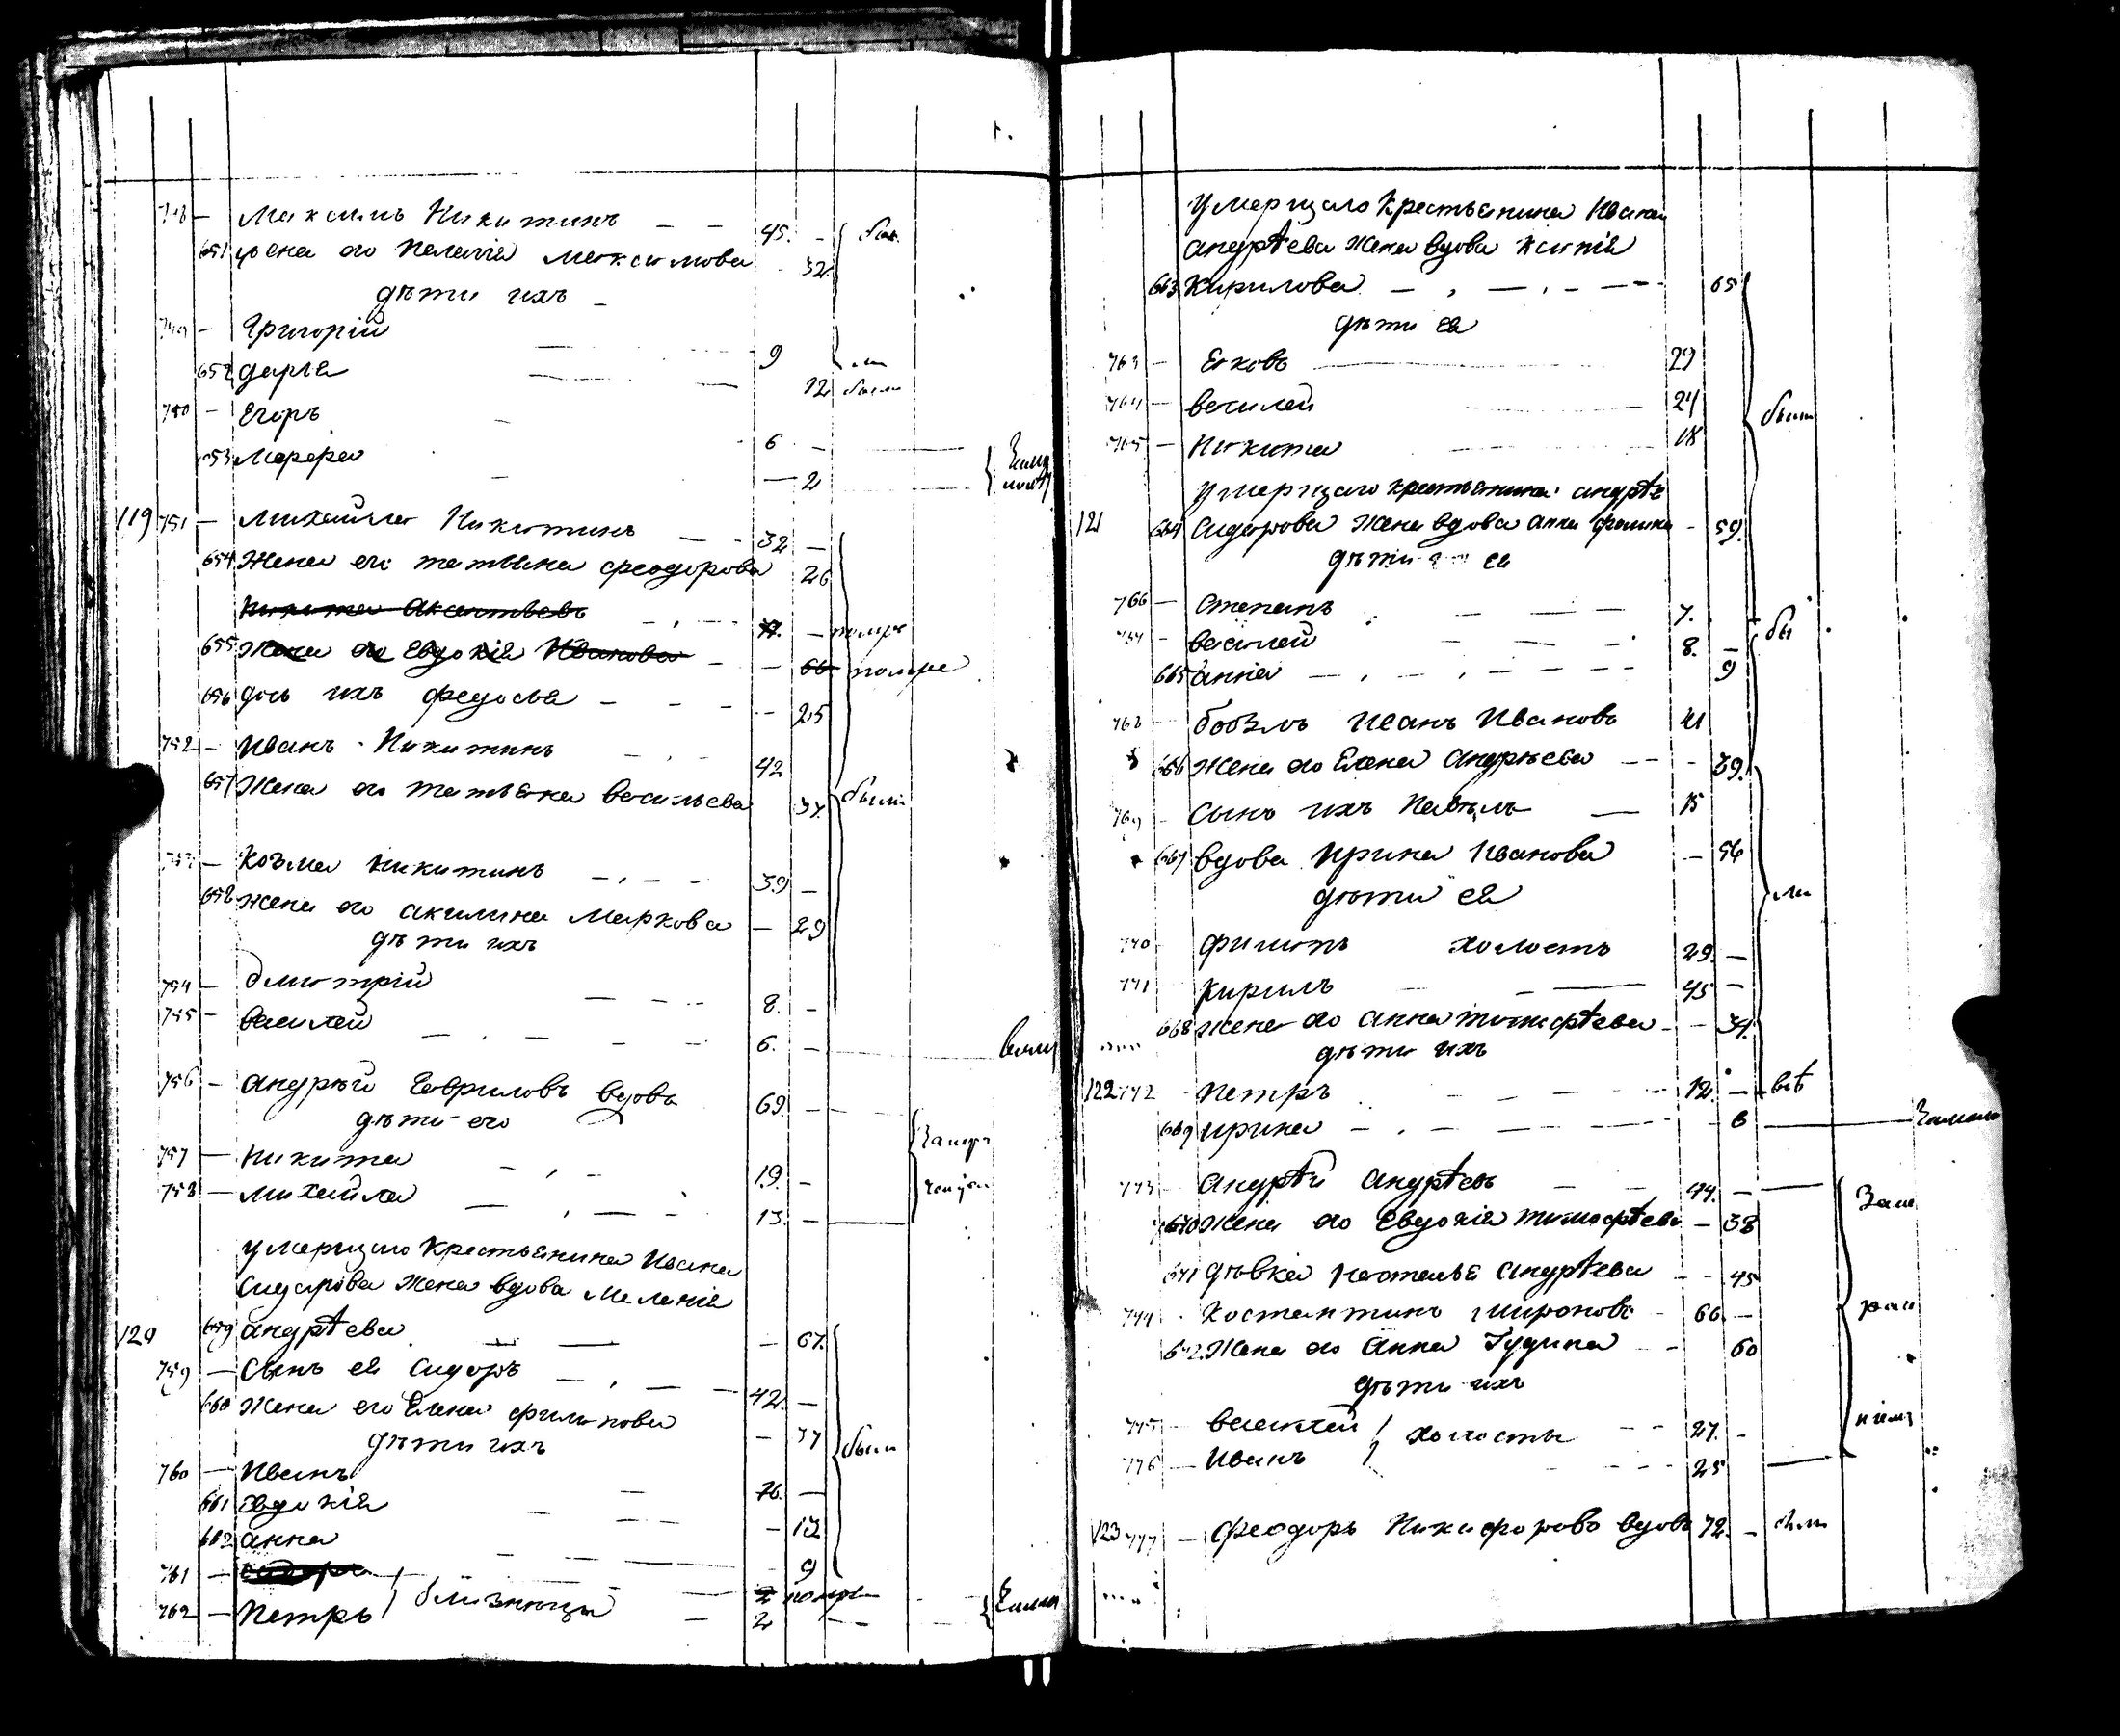 748 — Максимъ Никитинъ — — 45. —
651 жена его Пелагія Максимова 32
дѣти ихъ —
749 — Григорій — 9
652 дарья — 12 были
750 — Егоръ — 6 —
653 Марфа — 2
119 751 — Михайла Никитинъ — — 32 —
654 Жена его татьяна феодорова 26
Никита — помре
655 Жена его Евдокія Иванова — — 66 помре
656 дочь ихъ федосья — — — 25
752 — Иванъ Никитинъ 42
657 Жена его татьяна васильева 37 были
753 — Козьма Никитинъ — — — 39 —
658 жена его акилина Маркова — 29
дѣти ихъ
754 — дмитрій — — — 8. —
755 — василей — — — 6. —
756 — андрѣй Гавриловъ вдовъ 69. —
дѣти его
757 — Никита — — 19. —
758 — Михайла — — — 13. —
умершаго Крестьянина Ивана
Сидорова Жена вдова Меланія
120 659 андрѣева — — 67.
759 — Сынъ ея Сидоръ — — — 42. —
660 Жена его Елена филипова — 37 были
дѣти ихъ
760 — Иванъ — 16. —
661 Евдокія — — 13
662 анна — — 9
761 — помре
762 — Петръ } близнецы — 2
умершаго Крестьянина Ивана
андрѣева Жена вдова Ксинія
663 Кирилова — — — 65
дѣти ея
763 — Яковъ — 29
764 — василей — 24 были
765 — Никита — 18
умершаго крестьянина андрѣя
121 664 Сидорова Жена вдова анна — 59.
дѣти ея
766 — Степанъ — — — 7.
василей — — 8. —
665 анна — — — — 9
768 бобыль Иванъ Ивановъ 41
666 Жена его Елена Андрѣева — — 39.
769 Сынъ ихъ Павелъ — 15
667 вдова Ирина Иванова — 56
дѣти ея
770 филипъ холостъ 29. —
771 Кирилъ — — 45 —
668 жена его анна тимофѣева — — 34.
дѣти ихъ
122 772 Петръ — — — 12. —
669 ирина — — — — 6
773 андрѣй андрѣевъ — — 44. —
670 Жена его Евдокія тимофѣева — 38
671 дѣвка Наталья андрѣева — — 45
774 Костантинъ Мироновъ — 66. —
672 Жена его анна — 60
дѣти ихъ
775 — василей } холосты — — 27. —
776 — Иванъ — — — 25
123 777 — феодоръ Никифоровъ вдовъ 72. —